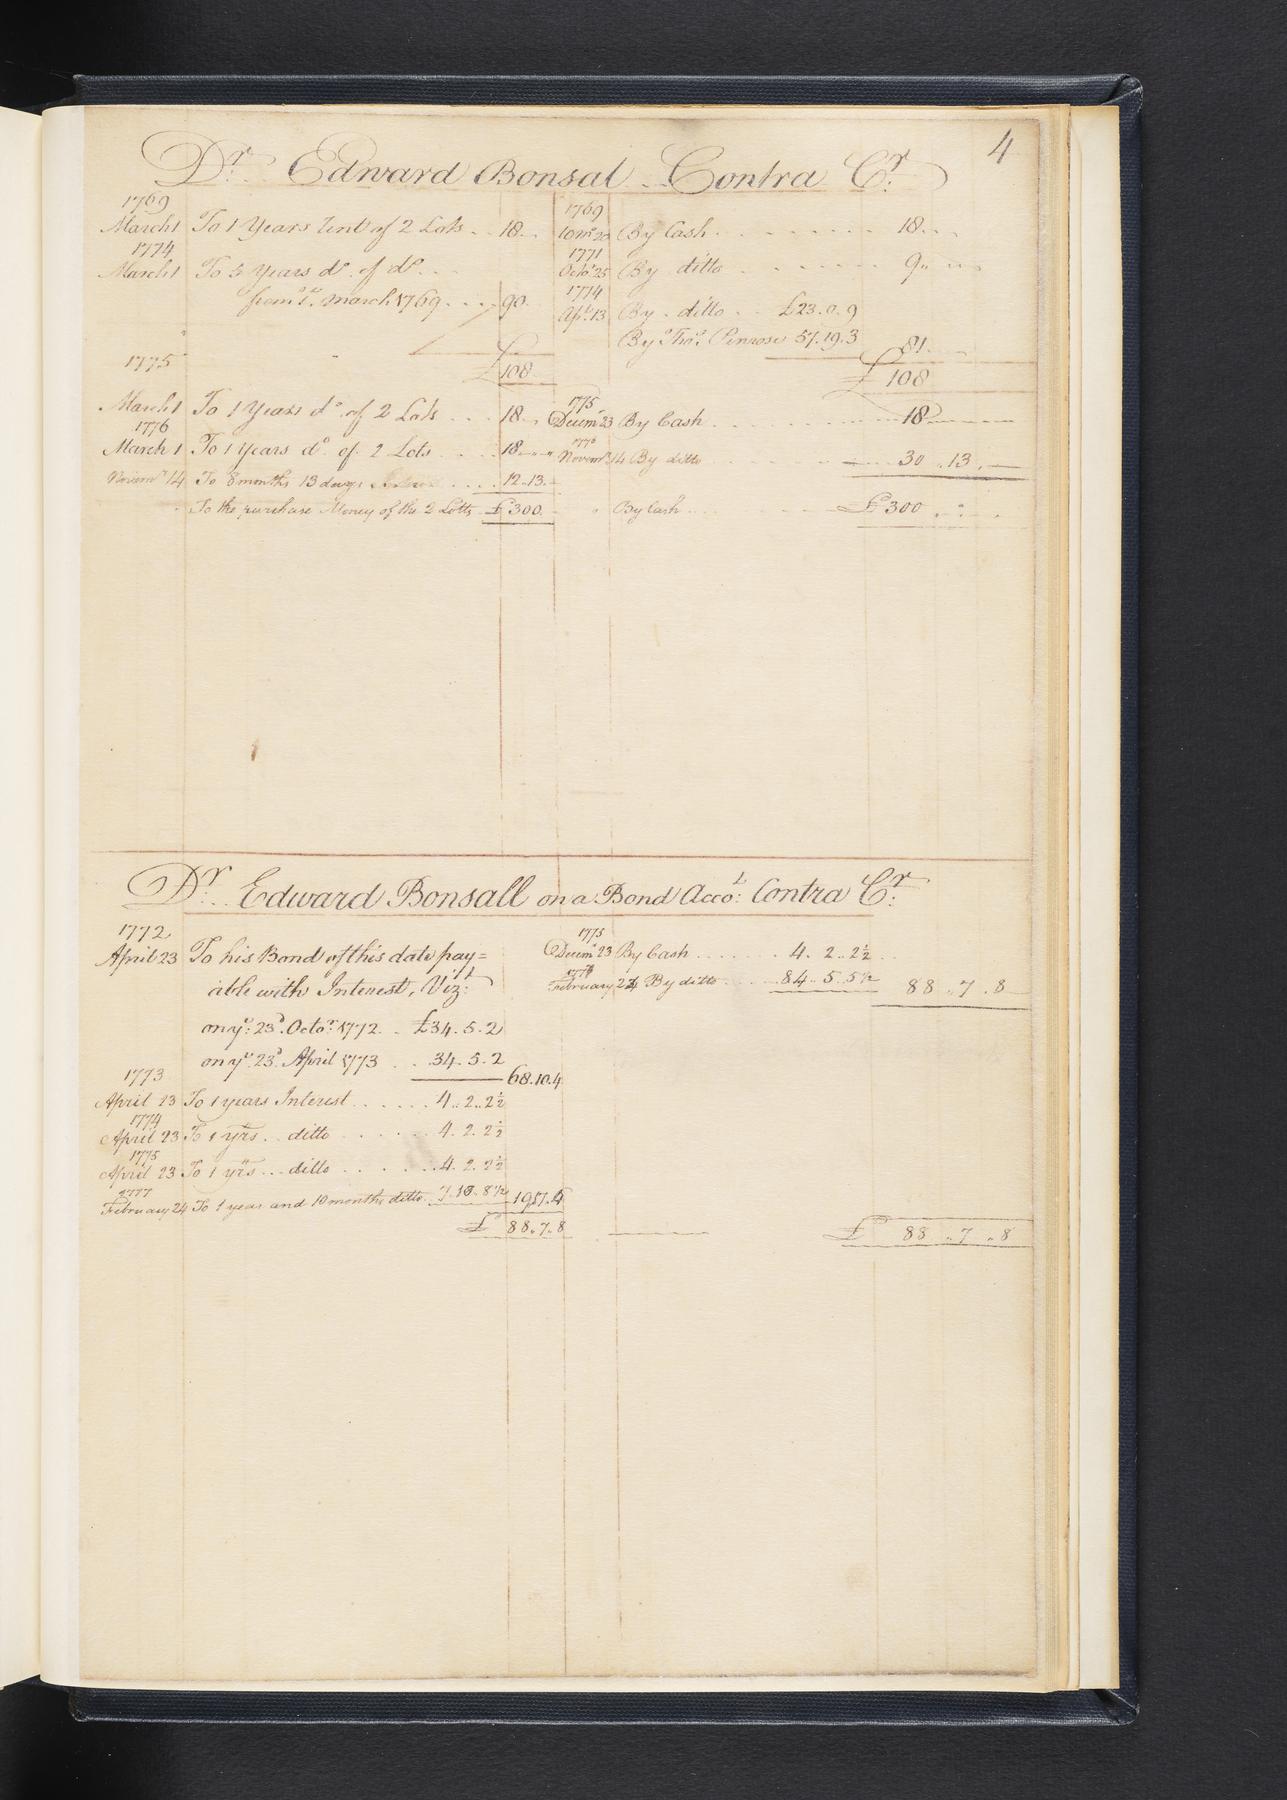 4
Dr. Edward Bonsal Contra Cr.
1769
March 1 To 1 Years Rent of 2 Lots .. 18..
1774
March 1 To 5 Years do. of do. ...
from 1st. March 1769 .... 90.
£108
1775
March 1 To 1 Years do. of 2 Lots ... 18..
1776
March 1 To 1 Years do. of 2 Lots .... 18..
Novemr 14 To 8 months 13 days .... 12..13.
To the purchase Money of the 2 Lotts £300.
1769
10 mo. 20 By Cash ........ 18...
1771
Octo. 25 By ditto ...... 9..
1774
Apr. 13 By ditto .. £23.0.9
By Thos. Penrose 57.19.3
81.
£108
1775
Decemr 23 By Cash ........ 18
1776
Novemr 14 By ditto ...... 30 .. 13 .
" By Cash ...... £300 ..
Dr. Edward Bonsall on a Bond Accot. Contra Cr.
1772
April 23 To his Bond of this date pay=
able with Interest, Vizt.
on ye. 23d. Octor. 1772 .. £34.5.2
on ye. 23d. April 1773 ... 34.5.2
68.10.4
1773
April 23 To 1 years Interest ...... 4..2..2½
1774
April 23 To 1 yrs .. ditto ...... 4.2.2½
1775
April 23 To 1 yrs ... ditto ...... 4.2.2½
1777
February 24 To 1 year and 10 months ditto. 7.10.8½ 19.17.4
£ 88.7.8
1775
Decemr 23 By Cash ....... 4.2..2½
February 24 By ditto ..... 84..5.5½
88..7..8
£ 88..7..8